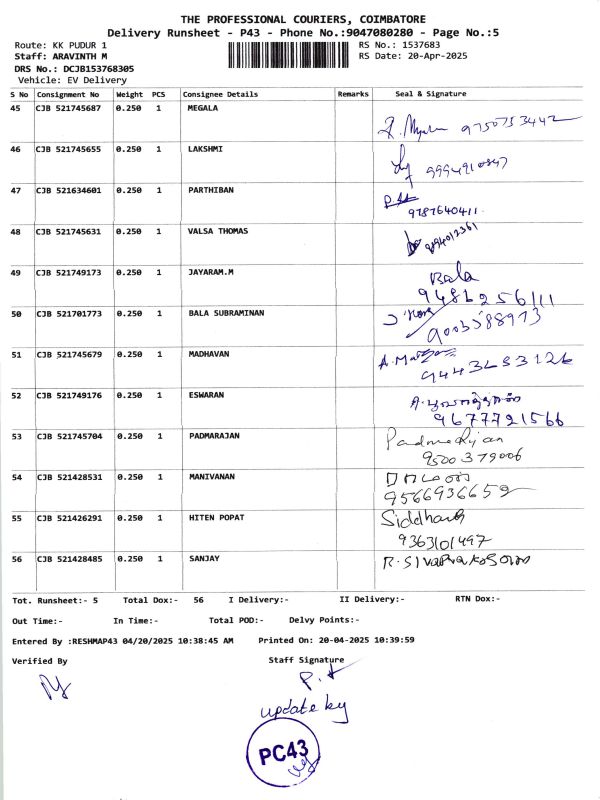 THE PROFESSIONAL COURIERS, COIMBATORE
Delivery Runsheet - P43 - Phone No.:9047080280 - Page No.:5
Route: KK PUDUR 1 RS No.: 1537683
Staff: ARAVINTH M RS Date: 20-Apr-2025
DRS No.: DCJB153768305
Vehicle: EV Delivery
S No Consignment No Weight PCS Consignee Details Remarks Seal & Signature
45 CJB 521745687 0.250 1 MEGALA
9750753442
46 CJB 521745655 0.250 1 LAKSHMI
9994910847
47 CJB 521634601 0.250 1 PARTHIBAN
9787640411
48 CJB 521745631 0.250 1 VALSA THOMAS
9894012361
49 CJB 521749173 0.250 1 JAYARAM.M
Bala
9486256111
50 CJB 521701773 0.250 1 BALA SUBRAMINAN
9003588973
51 CJB 521745679 0.250 1 MADHAVAN
9443253126
52 CJB 521749176 0.250 1 ESWARAN
9677721566
53 CJB 521745704 0.250 1 PADMARAJAN
Padmarajan
9500379006
54 CJB 521428531 0.250 1 MANIVANAN
9566936659
55 CJB 521426291 0.250 1 HITEN POPAT
Siddharth
9363101497
56 CJB 521428485 0.250 1 SANJAY
R. SIVAPRAKASAM
Tot. Runsheet:- 5 Total Dox:- 56 I Delivery:- II Delivery:- RTN Dox:-
Out Time:- In Time:- Total POD:- Delvy Points:-
Entered By :RESHMAP43 04/20/2025 10:38:45 AM Printed On: 20-04-2025 10:39:59
Verified By Staff Signature
update by
PC43